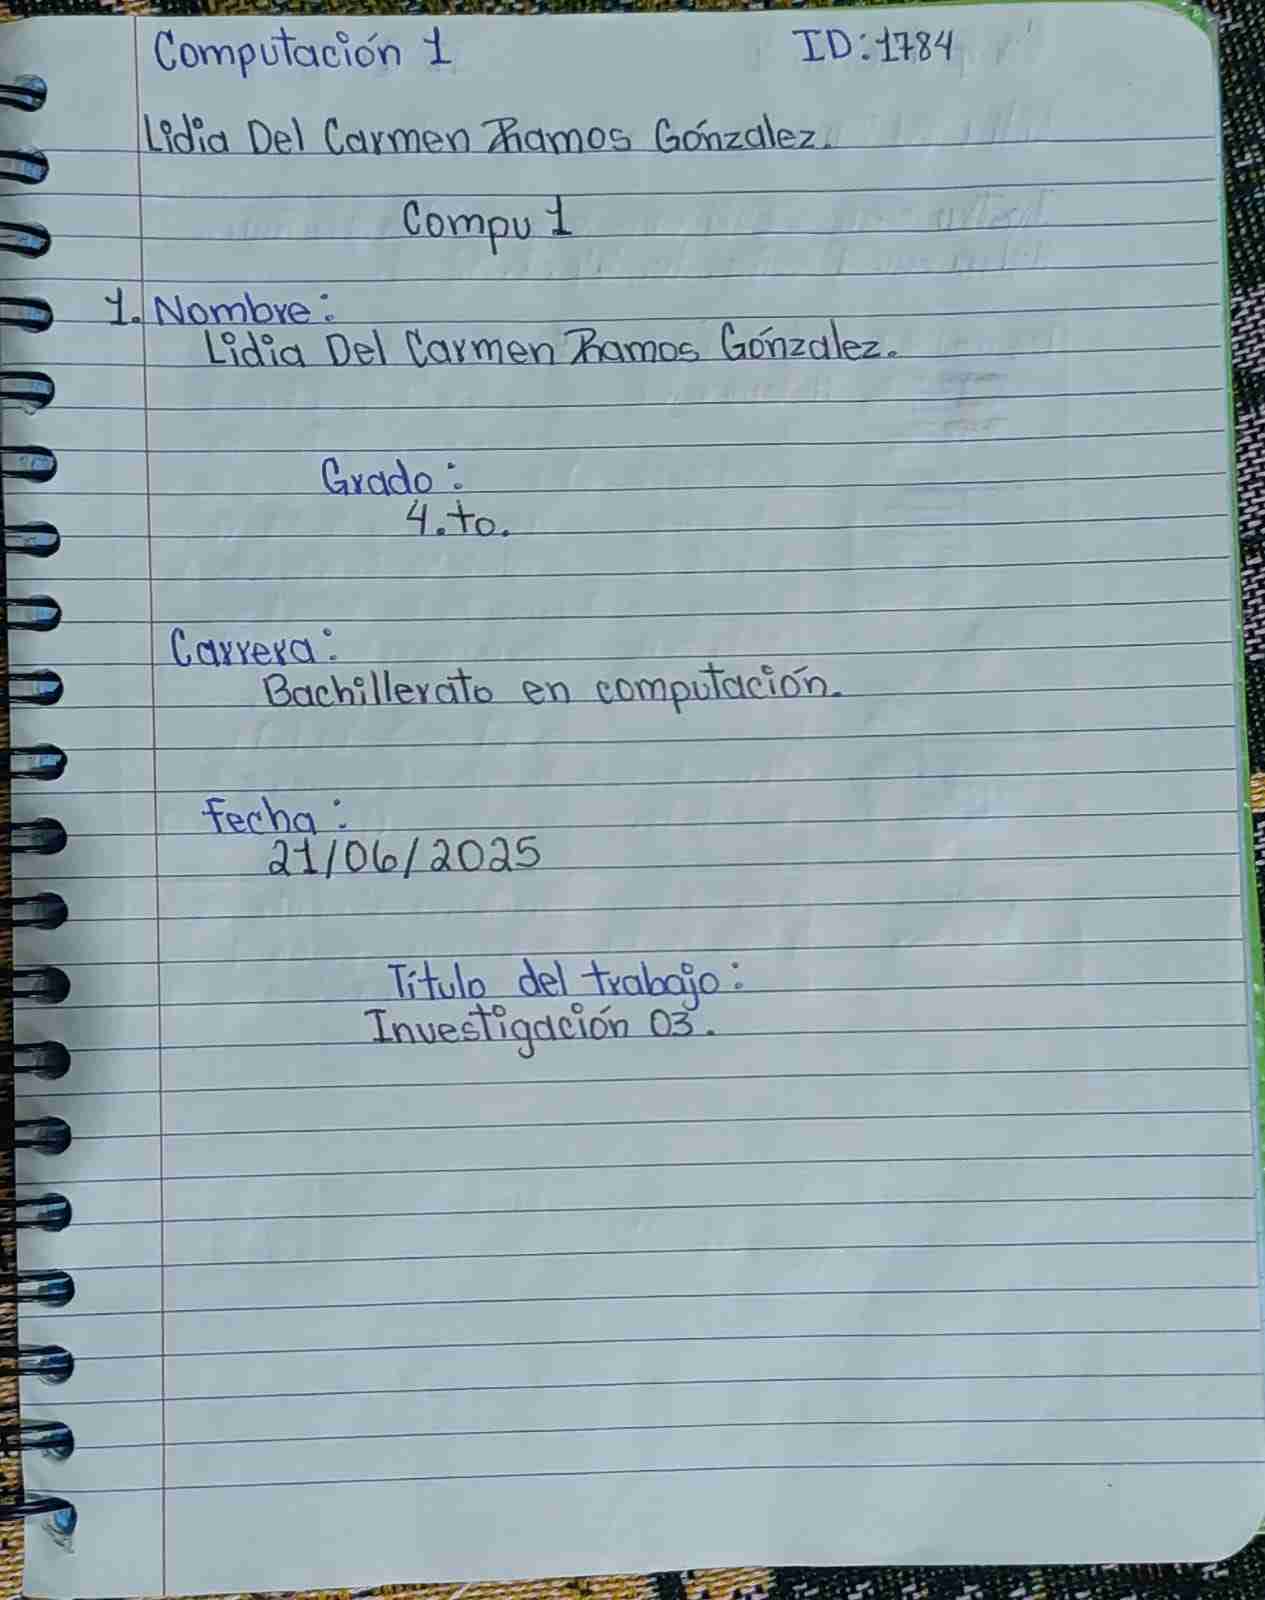 Computación 1 ID:1784
Lidia Del Carmen Ramos Gónzalez.
Compu 1
1. Nombre:
Lidia Del Carmen Ramos Gónzalez.
Grado:
4.to.
Carrera:
Bachillerato en computación.
fecha:
21/06/2025
Título del trabajo:
Investigación 03.